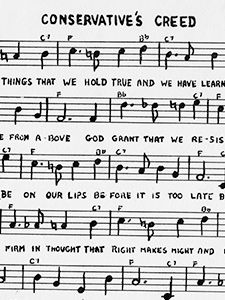 CONSERVATIVE'S CREED
C7 F B♭ C7
THINGS THAT WE HOLD TRUE AND WE HAVE LEARN
C7 F B♭
FROM A-BOVE GOD GRANT THAT WE RE-SIS
C7 F B♭ C7 F
BE ON OUR LIPS BE FORE IT IS TOO LATE B
C7 F B♭
FIRM IN THOUGHT THAT RIGHT MAKES MIGHT AND
F C7 F